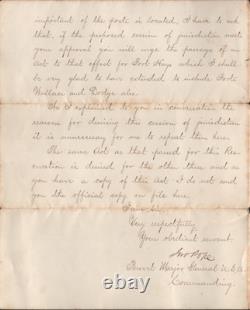 important of the posts is located. I have to ask
that, if the proposed cession of jurisdiction meets
your approval you will urge the passage of an
Act to that effect for Fort Hays which I shall
be very glad to have extended to include Forts
Wallace and Dodge also.
As I explained to you in conversation the
reasons for desiring this cession of jurisdiction
it is unnecessary for me to repeat them here.
The same Act as that passed for this Res-
ervation is desired for the other three and as
you have a copy of this Act I do not send
you the official copy on file here.
I am Sir,
Very respectfully
Your obedient servant.
Jno Pope
Brevet Major General U.S.A.
Commanding.
ebay